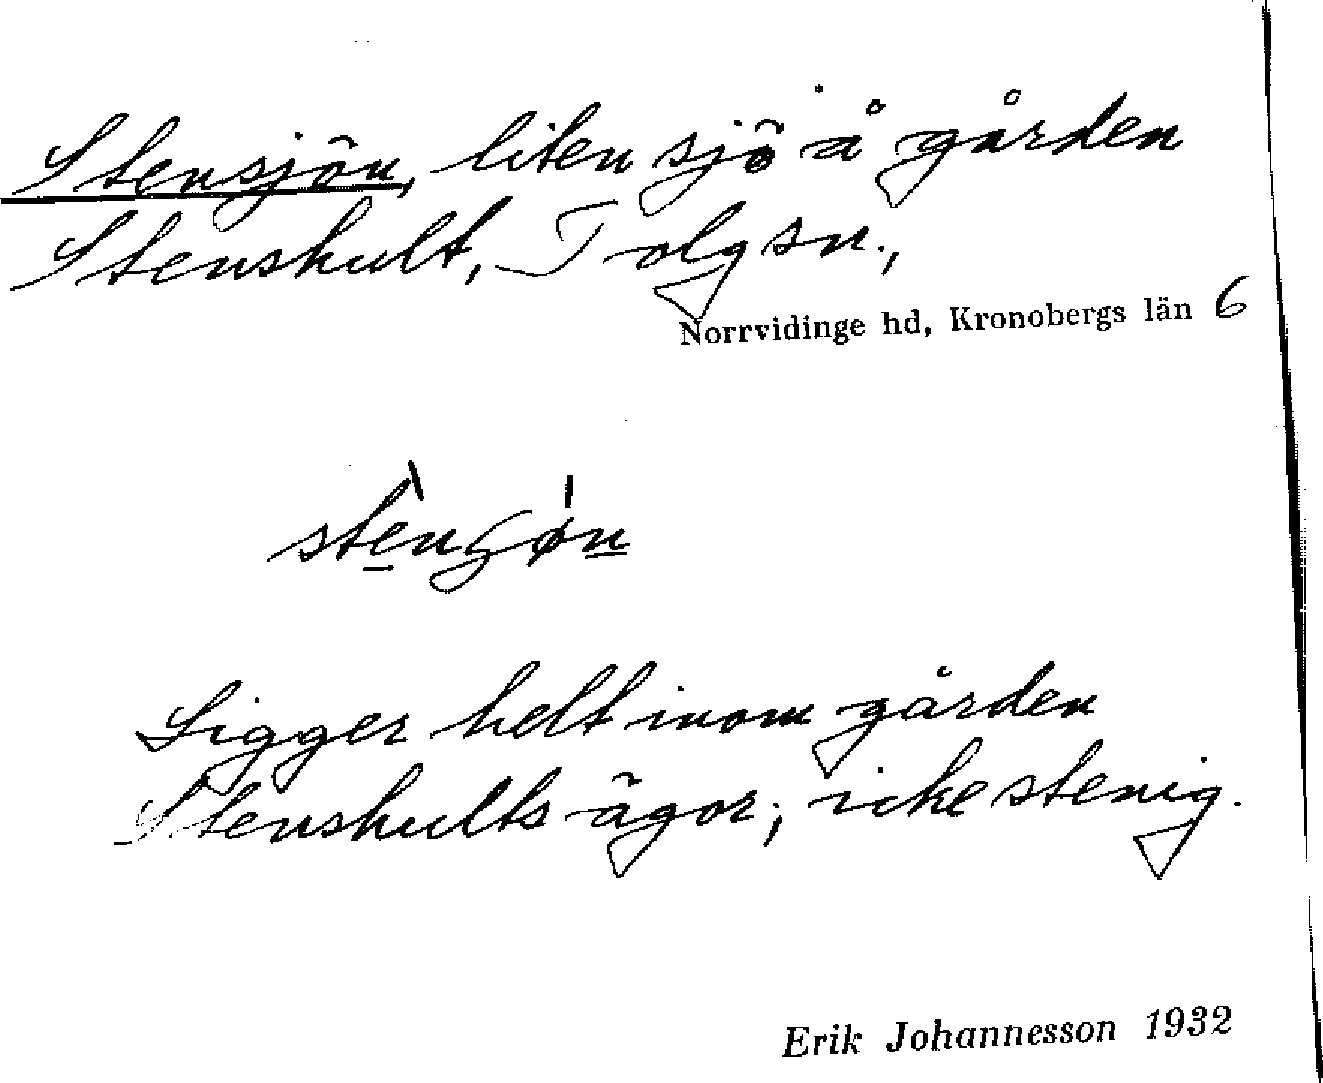 Stensjön, liten sjö å gården
Stenshult, Tolg sn.,
Norrvidinge hd, Kronobergs län 6
Ligger helt inom gården
Stenshults ägor; icke stenig.
Erik Johannesson 1932